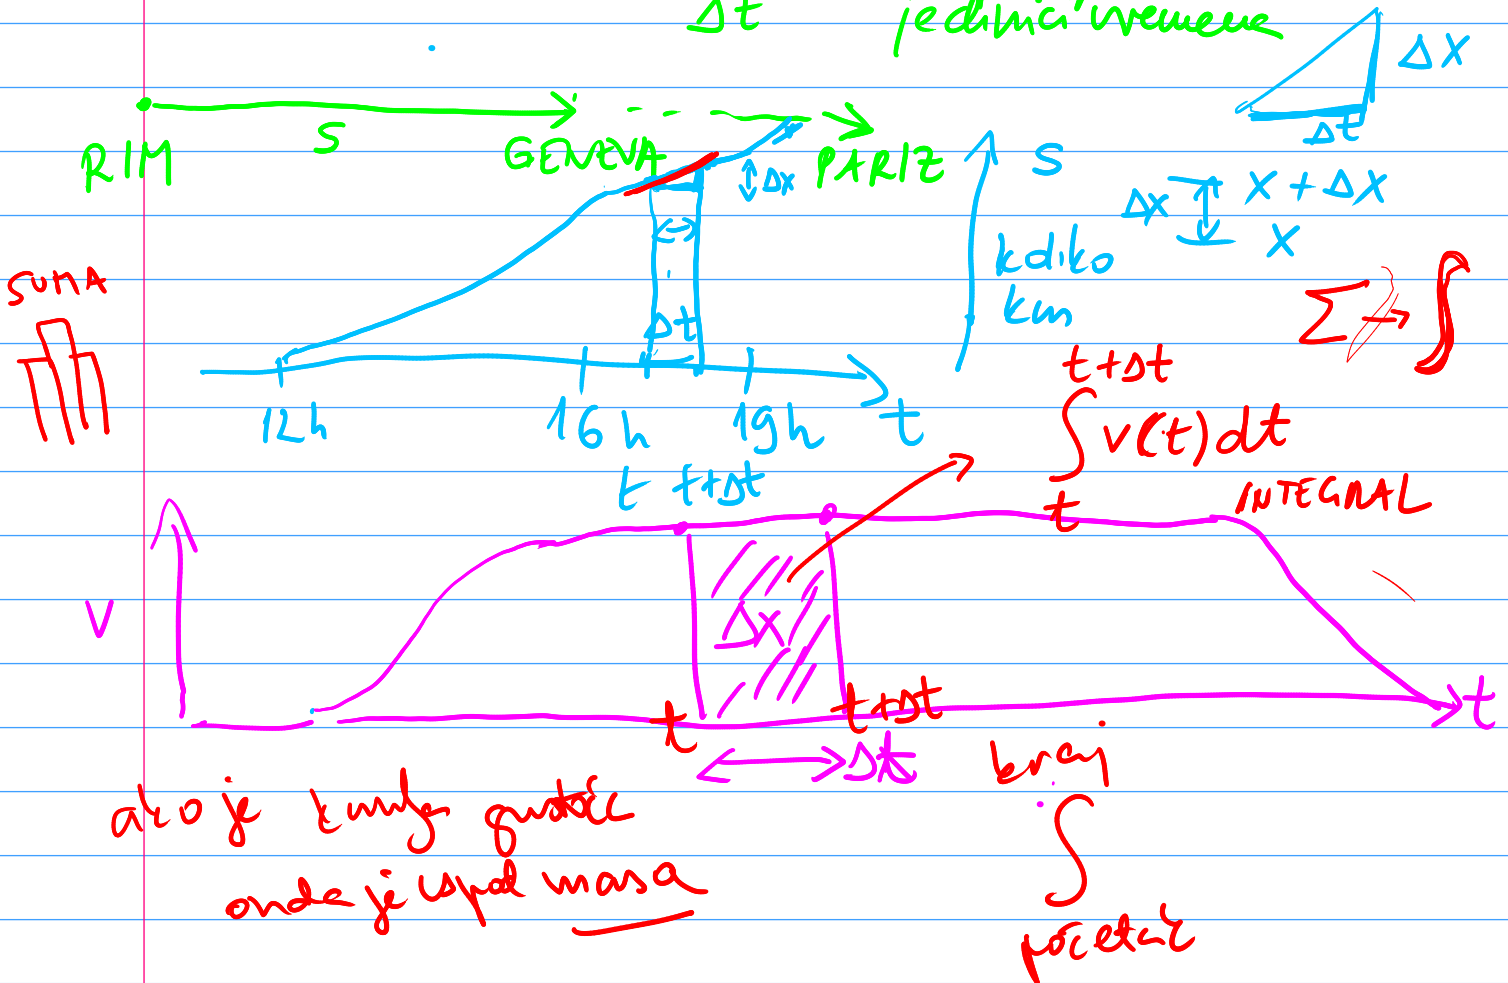 Δt jedinici vremena
Δx
Δt
S
RIM GENEVA PARIZ
Δx
S
Δx x + Δx
x
koliko
km
SUMA
Σ → ∫
Δt
12h 16h 19h t
t t+Δt
t+Δt
∫ v(t)dt
t
INTEGRAL
V
Δx
t t+Δt t
Δt
kraj
∫
početak
ako je gustoća
onda je ispod masa